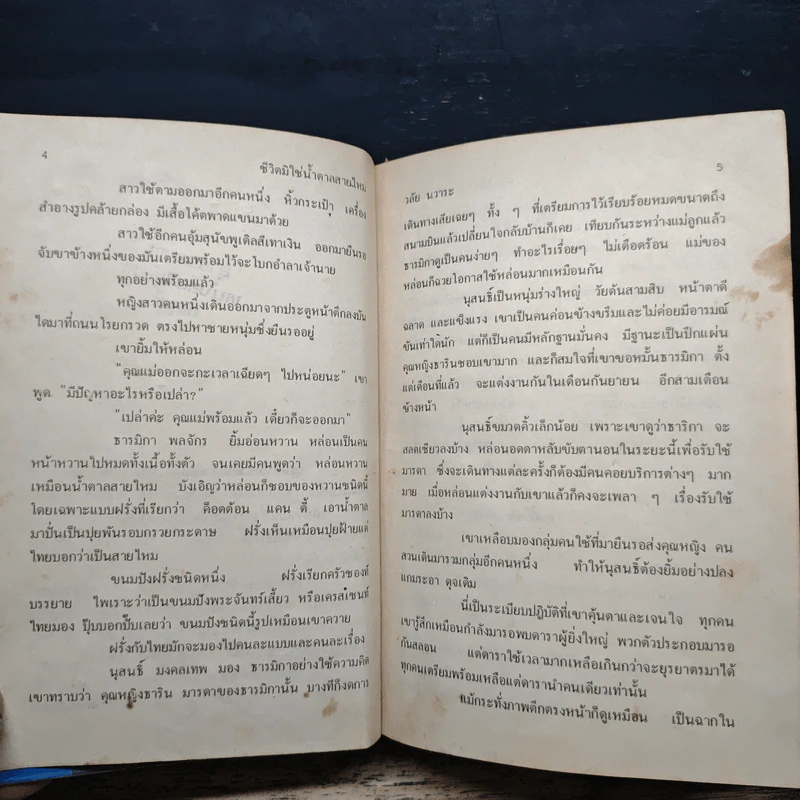 4
ชีวิตมิใช่น้ำตาลสายไหม
สาวใช้ตามออกมาอีกคนหนึ่ง หิ้วกระเป๋า เครื่อง
สำอางรูปคล้ายกล่อง มีเสื้อโค้ตพาดแขนมาด้วย
สาวใช้อีกคนอุ้มสุนัขพูเดิลสีเทาเงิน ออกมายืนรอ
จับขาข้างหนึ่งของมันเตรียมพร้อมไว้จะโบกอำลาเจ้านาย
ทุกอย่างพร้อมแล้ว
หญิงสาวคนหนึ่งเดินออกมาจากประตูหน้าตึกลงบัน
ไดมาที่ถนนโรยกรวด ตรงไปหาชายหนุ่มซึ่งยืนรออยู่
เขายิ้มให้หล่อน
"คุณแม่ออกจะกะเวลาเฉียดๆ ไปหน่อยนะ" เขา
พูด "มีปัญหาอะไรหรือเปล่า?"
"เปล่าค่ะ คุณแม่พร้อมแล้ว เดี๋ยวก็จะออกมา"
ธารมิกา พลจักร ยิ้มอ่อนหวาน หล่อนเป็นคน
หน้าหวานไปหมดทั้งเนื้อทั้งตัว จนเคยมีคนพูดว่า หล่อนหวาน
เหมือนน้ำตาลสายไหม บังเอิญว่าหล่อนก็ชอบของหวานชนิดนี้
โดยเฉพาะแบบฝรั่งที่เรียกว่า ค็อตต้อน แคน ดี้ เอาน้ำตาล
มาปั่นเป็นปุยพันรอบกรวยกระดาษ ฝรั่งเห็นเหมือนปุยฝ้ายแต่
ไทยบอกว่าเป็นสายไหม
ขนมปังฝรั่งชนิดหนึ่ง ฝรั่งเรียกครัวซองท์
บรรยาย ไพเราะว่าเป็นขนมปังพระจันทร์เสี้ยว หรือเครสเซนท์
ไทยมอง ปุ๊บบอกปั๊บเลยว่า ขนมปังชนิดนี้รูปเหมือนเขาควาย
ฝรั่งกับไทยมักจะมองไปคนละแบบและคนละเรื่อง
นุสนธิ์ มงคลเทพ มอง ธารมิกาอย่างใช้ความคิด
เขาทราบว่า คุณหญิงธาริน มารดาของธารมิกานั้น บางทีก็งดการ
5
วลัย นวาระ
เดินทางเสียเฉยๆ ทั้ง ๆ ที่เตรียมการไว้เรียบร้อยหมดขนาดถึง
สนามบินแล้วเปลี่ยนใจกลับบ้านก็เคย เทียบกันระหว่างแม่ลูกแล้ว
ธารมิกาดูเป็นคนง่ายๆ ทำอะไรเรื่อยๆ ไม่เดือดร้อน แม่ของ
หล่อนก็ฉวยโอกาสใช้หล่อนมากเหมือนกัน
นุสนธิ์เป็นหนุ่มร่างใหญ่ วัยต้นสามสิบ หน้าตาดี
ฉลาด และแข็งแรง เขาเป็นคนค่อนข้างขรึมและไม่ค่อยมีอารมณ์
ขันเท่าใดนัก แต่ก็เป็นคนมีหลักฐานมั่นคง มีฐานะเป็นปึกแผ่น
คุณหญิงธารินชอบเขามาก และก็สมใจที่เขาขอหมั้นธารมิกา ตั้ง
แต่เดือนที่แล้ว จะแต่งงานกันในเดือนกันยายน อีกสามเดือน
ข้างหน้า
นุสนธิ์ขมวดคิ้วเล็กน้อย เพราะเขาดูว่าธาริกา จะ
สลดเซียวลงบ้าง หล่อนอดตาหลับขับตานอนในระยะนี้เพื่อรับใช้
มารดา ซึ่งจะเดินทางแต่ละครั้งก็ต้องมีคนคอยบริการต่างๆ มาก
มาย เมื่อหล่อนแต่งงานกับเขาแล้วก็คงจะเพลา ๆ เรื่องรับใช้
มารดาลงบ้าง
เขาเหลือบมองกลุ่มคนใช้ที่มายืนรอส่งคุณหญิง คน
สวนเดินมารวมกลุ่มอีกคนหนึ่ง ทำให้นุสนธิ์ต้องยิ้มอย่างปลง
แกมระอา ดุจเดิม
นี่เป็นระเบียบปฏิบัติที่เขาคุ้นตาและเจนใจ ทุกคน
เขารู้สึกเหมือนกำลังมารอพบดาราผู้ยิ่งใหญ่ พวกตัวประกอบมารอ
กันสลอน แต่ดาราใช้เวลามากเหลือเกินกว่าจะยุรยาตรมาได้
ทุกคนเตรียมพร้อมเหลือแต่ดารานำคนเดียวเท่านั้น
แม้กระทั่งภาพตึกตรงหน้าก็ดูเหมือน เป็นฉากใน